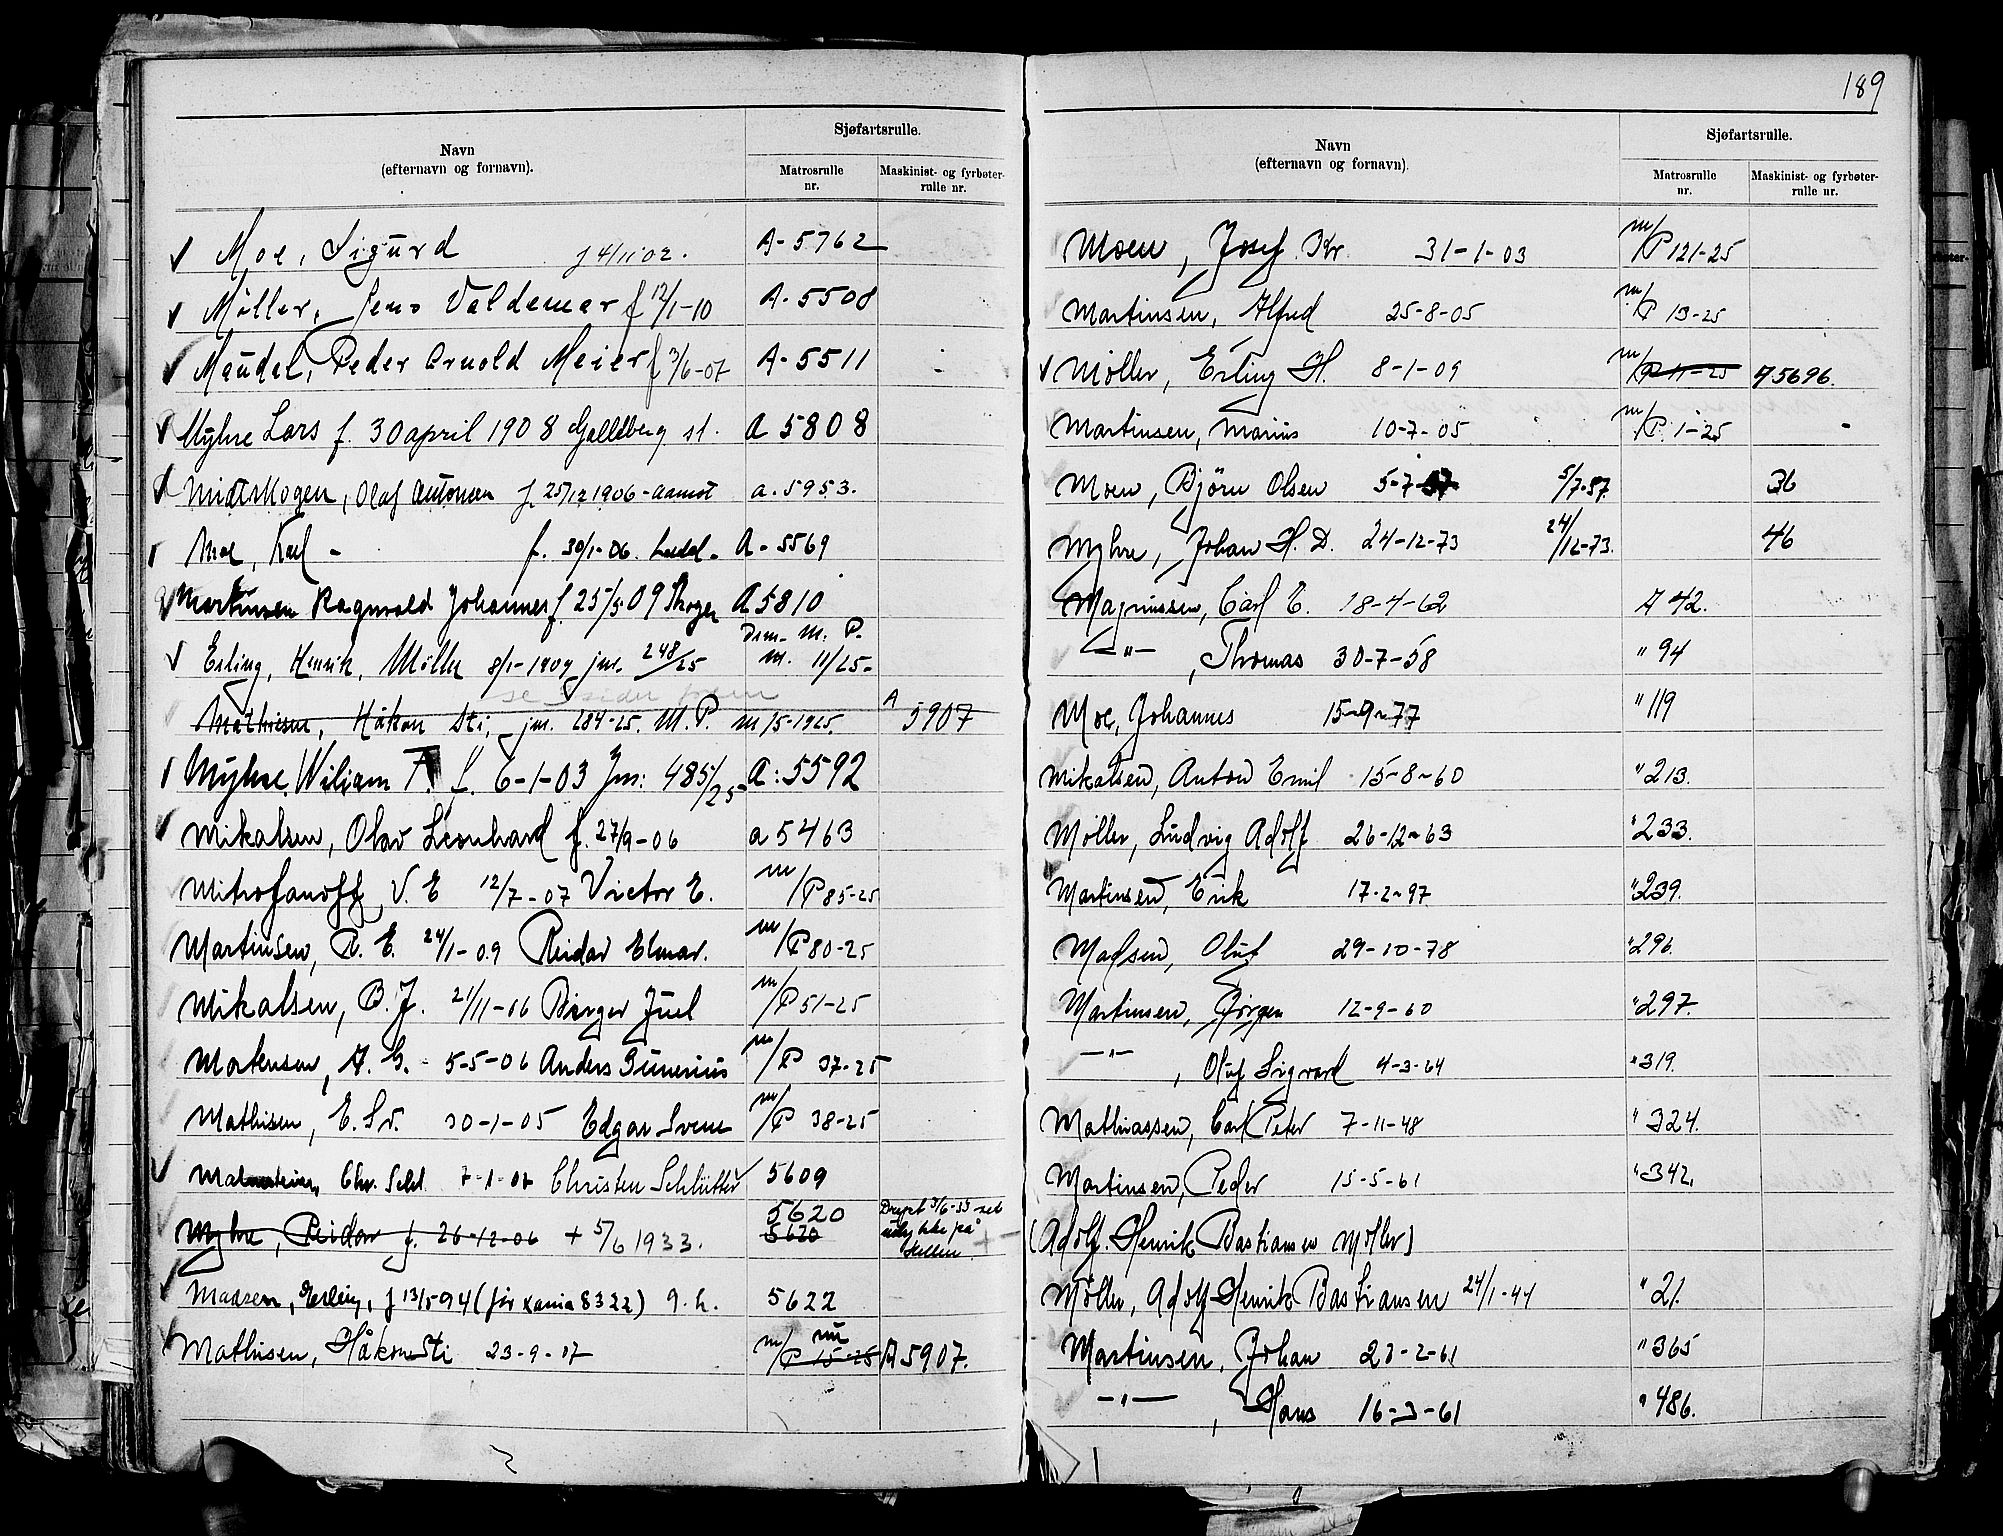 189
Navn
(efternavn og fornavn).
Sjøfartsrulle.
Matrosrulle nr.
Maskinist- og fyrbøter-rulle nr.
Moe, Sigurd f 4/11 02. A-5762
Møller, Jens Valdemar f 12/1-10 A-5508
Maudel, Peder Arnold Meier f 3/6-07 A-5511
Myhre Lars f. 30 april 1908 st. A 5808
Midtskogen, Olaf Antonsen f. 25/12 1906 - Aamot a. 5953.
Moe, Karl - f. 30/1-06. A-5569
Martinsen Ragnvald Johannes f. 25/5 09 Skoger A 5810
Erling, Henrik, Møller 8/1-1909 jnr. 248/25 Dram. M. P. m. 11/25-
se siden
Mathisen, Håkon Sti, jnr. 284-25. M. P. m 15-1925. A 5907
Myhre, Wiliam F. f. 6-1-03 Jnr: 485/25 A: 5592
Mikalsen, Olav Leonhard f. 27/9-06 a 5463
Mitrofanoff, V. E 12/7-07 Victor E. m/P 85-25
Martinsen, R. E. 24/1-09 Reidar Elmar. m/P 80-25
Mikalsen, B. J. 21/11-06 Birger Juel m/P 51-25
Mortensen, A. G. - 5-5-06 Anders Gunerius m/P 37-25
Mathisen, E. Sv. 30-1-05 Edgar Svene m/P 38-25
Chr. Schl. 7-1-07 Christen Schlütter 5609
Myhre, Reidar f. 26-12-06 + 5/6 1933. 5620 5620 ikke på
Madsen, Erling, f 13/5 94 (før Xania 8322) g. h. 5622
Mathisen, Håkon Sti 23-9-07 m/P 15-25 nu A 5907.
Navn
(efternavn og fornavn).
Sjøfartsrulle.
Matrosrulle nr.
Maskinist- og fyrbøter-rulle nr.
Moen, Josef Kr. 31-1-03 m/P 121-25
Martinsen, Alfred 25-8-05 m/P 13-25
Møller, Erling H. 8-1-09 m/P 11-25 A 5696.
Martinsen, Marius 10-7-05 m/P. 1-25
Moen, Bjørn Olsen 5-7-87 5/7-87 36
Myhre, Johan H. D. 24-12-73 24/12-73. 46
Magnussen, Carl E. 18-4-62 A 42.
-"- , Thomas 30-7-58 " 94
Moe, Johannes 15-9-77 " 119
Mikalsen, Anton Emil 15-8-60 " 213.
Møller, Ludvig Adolf 26-12-63 " 233.
Martinsen, Erik 17-2-97 " 239.
Madsen, Oluf 29-10-78 " 296.
Martinsen, Jørgen 12-9-60 " 297.
-"- , Oluf Sigvard 4-3-64 " 319.
Mathiassen, Carl Peter 7-11-48 " 324.
Martinsen, Peder 15-5-61 " 342.
(Adolf. Henrik Bastiansen Møller)
Møller, Adolf Henrik Bastiansen 24/1-44 " 21.
Martinsen, Johan 23-2-61 " 365
-"- , Hans 16-3-61 " 486.